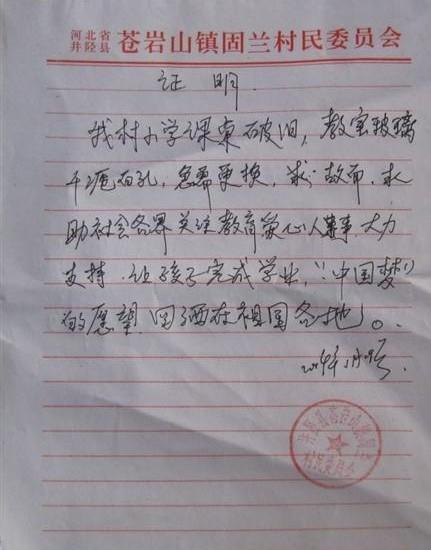 河北省
井陉县 苍岩山镇固兰村民委员会
证明.
我村小学课桌破旧，教室玻璃
千疮百孔，急需更换，
助社会各界关注教育爱心人士 大力
支持.让孩子完成学业，"中国梦"
的愿望 洒在祖国各地。